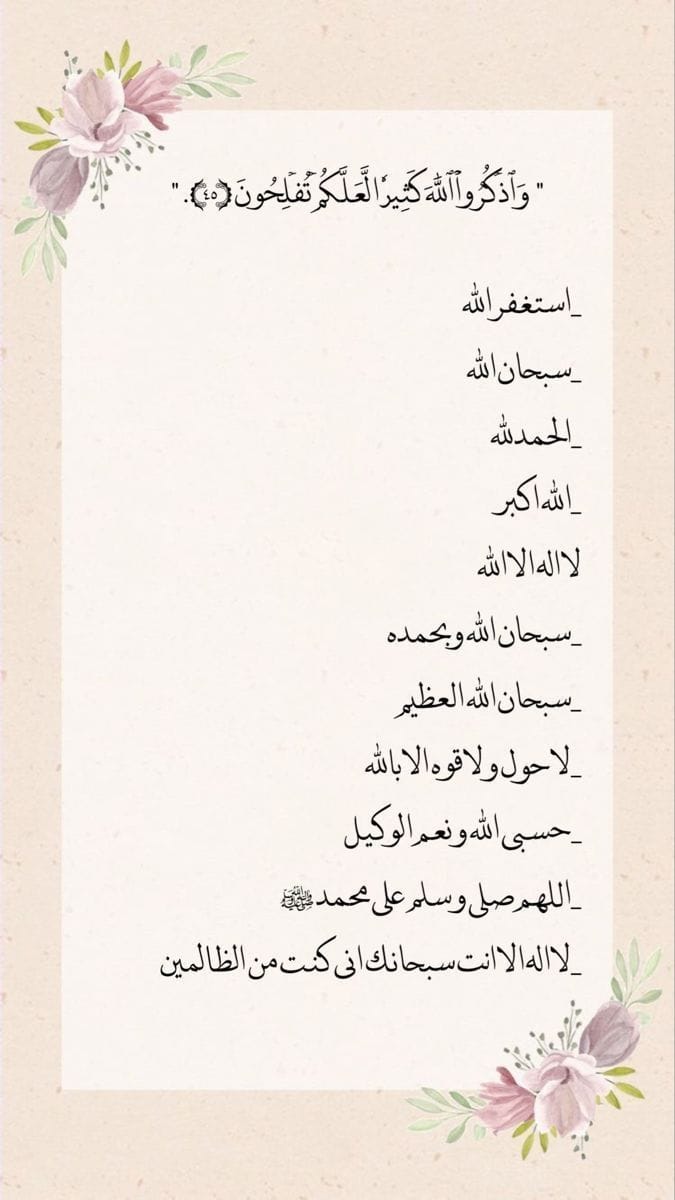 " وَٱذۡكُرُوا۟ ٱللَّهَ كَثِيرٗا لَّعَلَّكُمۡ تُفۡلِحُونَ ﴿٤٥﴾. "
_استغفر الله
_سبحان الله
_الحمدلله
_الله اكبر
لا اله الا الله
_سبحان الله وبحمده
_سبحان الله العظيم
_لا حول ولا قوه الا بالله
_حسبي الله ونعم الوكيل
_اللهم صلي وسلم على محمد ﷺ
_لا اله الا انت سبحانك اني كنت من الظالمين